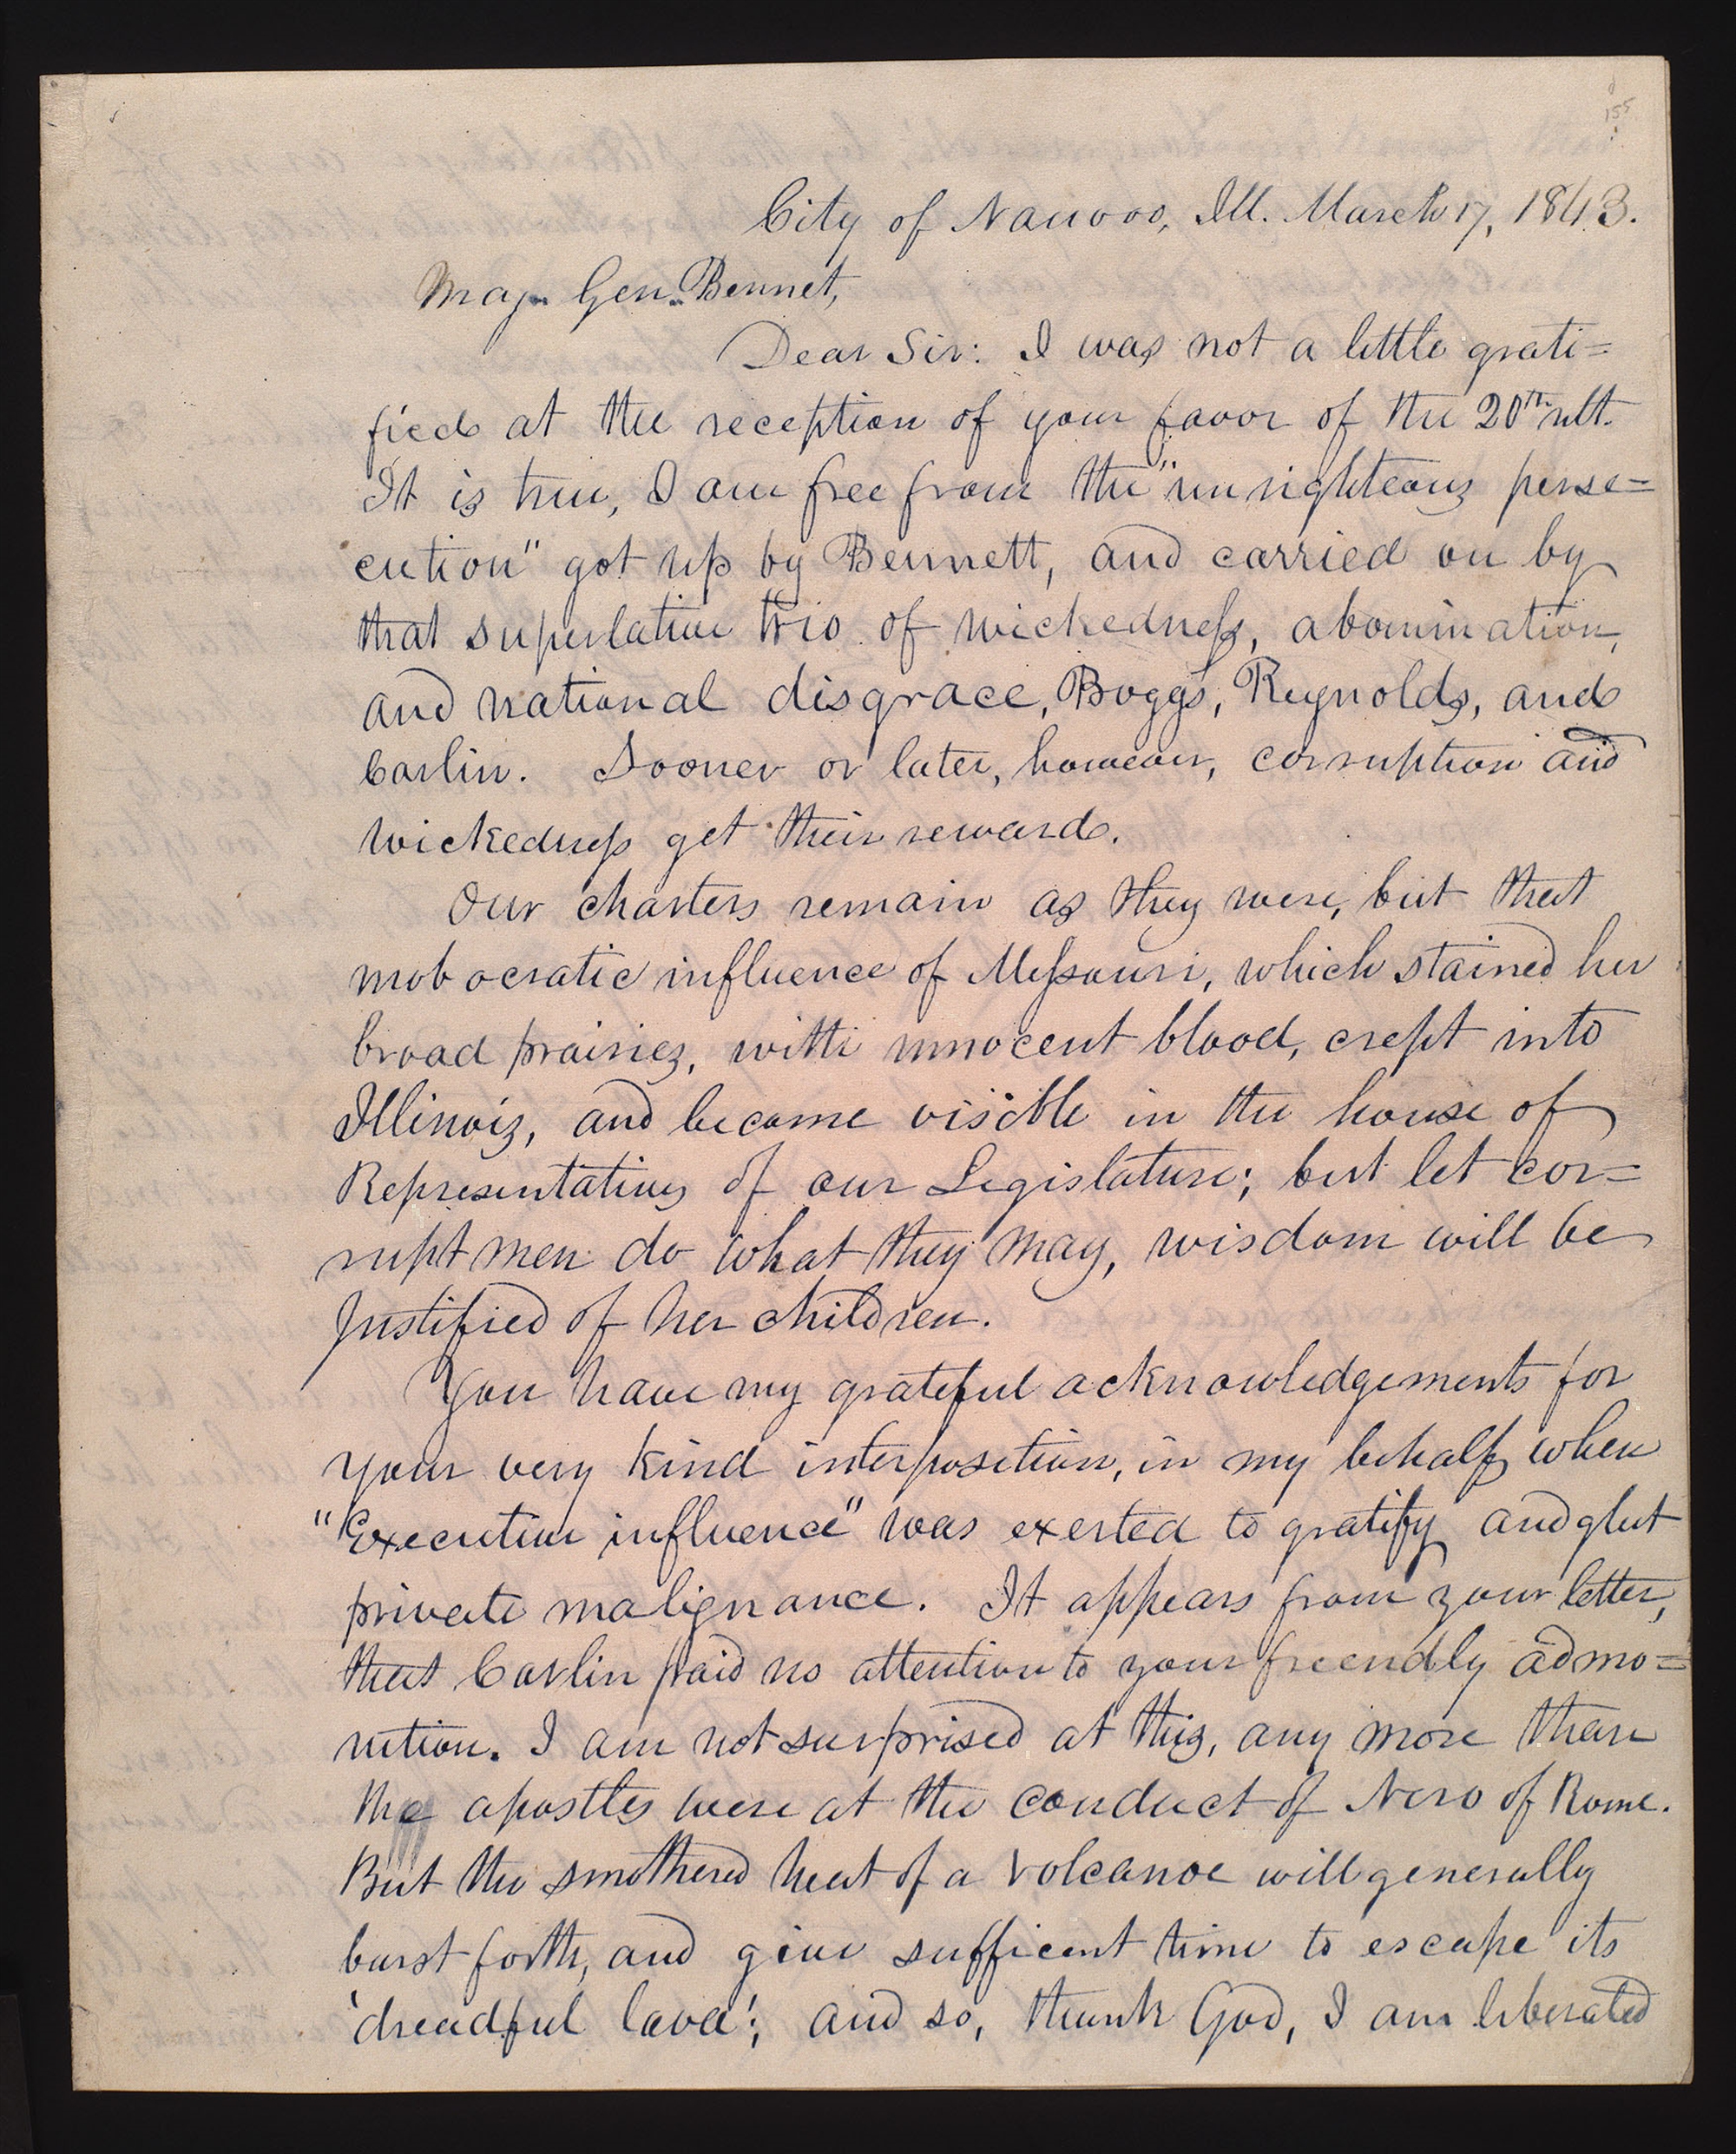 155
City of Nauvoo, Ill. March 17, 1843.
Maj. Gen. Bennet,
Dear Sir: I was not a little grati=
fied at the reception of your favor of the 20th ult.
It is true, I am free from the "unrighteous perse=
cution" got up by Bennett, and carried on by
that superlative trio of wickedness, abomination,
and national disgrace, Boggs, Reynolds, and
Carlin. Sooner or later, however, corruption and
wickedness get their reward.
Our charters remain as they were, but that
mobocratic influence of Missouri, which stained her
broad prairies, with innocent blood, crept into
Illinois, and became visible in the house of
Representatives of our Legislature; but let cor=
rupt men do what they may, wisdom will be
justified of her children.
You have my grateful acknowledgements for
your very kind interposition, in my behalf, when
"Executive influence" was exerted to gratify and glut
private malignance. It appears from your letter,
that Carlin paid no attention to your freendly admo=
nition. I am not surprised at this, any more than
the apostles were at the conduct of Nero of Rome.
But the smothered heat of a volcanoe will generally
burst forth, and give sufficent time to escape its
'dreadful lava'; and so, thank God, I am liberated